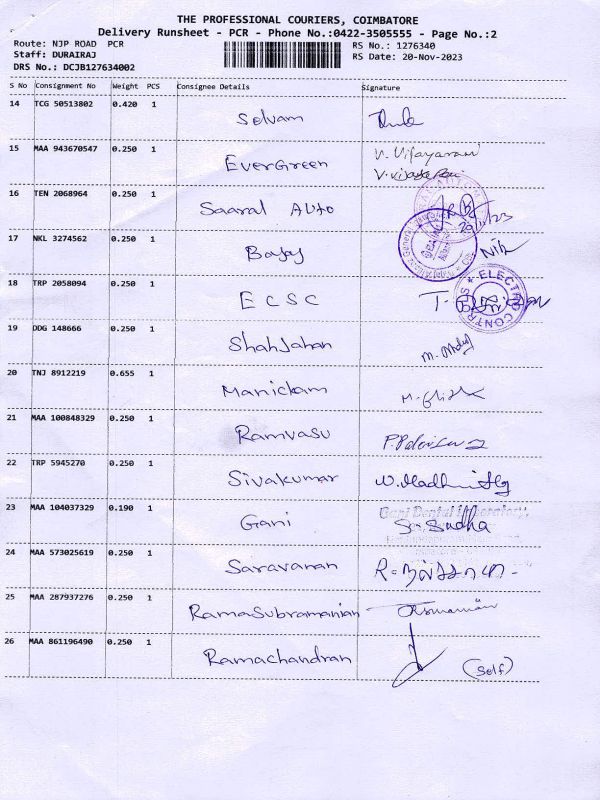 THE PROFESSIONAL COURIERS, COIMBATORE
Delivery Runsheet - PCR - Phone No.:0422-3505555 - Page No.:2
Route: NJP ROAD PCR
RS No.: 1276340
Staff: DURAIRAJ
RS Date: 20-Nov-2023
DRS No.: DCJB127634002
S No Consignment No Weight PCS Consignee Details Signature
14 TCG 50513802 0.420 1 Selvam
15 MAA 943670547 0.250 1 EverGreen V. Vijayarani
16 TEN 2068964 0.250 1 Saaral Auto 20/11/23
17 NKL 3274562 0.250 1 Bajaj
18 TRP 2058094 0.250 1 ECSC
ELECTRO CONTROLS
19 ODG 148666 0.250 1 ShahJahan
20 TNJ 8912219 0.655 1 Manickam
21 MAA 100848329 0.250 1 Ramvasu
22 TRP 5945270 0.250 1 Sivakumar
23 MAA 104037329 0.190 1 Gani Sudha
Gani Dental Laboratory,
24 MAA 573025619 0.250 1 Saravanan
25 MAA 287937276 0.250 1 RamaSubramanian
26 MAA 861196490 0.250 1 Ramachandran (Self)